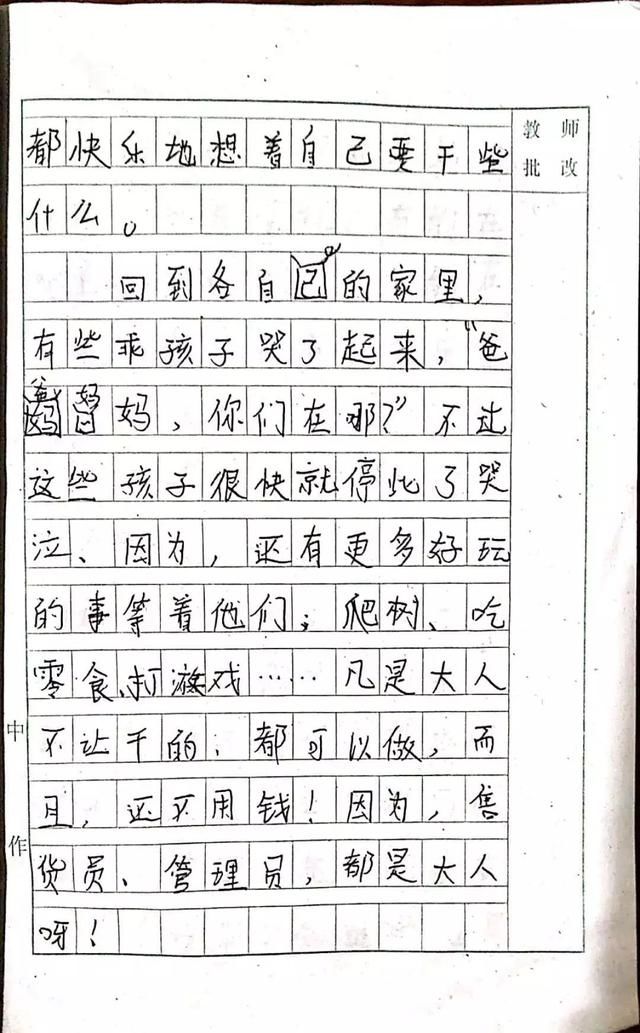 教师
批改
都快乐地想着自己要干些
什么。
回到各自的家里,
有些乖孩子哭了起来,“爸
爸妈妈,你们在哪?”不过
这些孩子很快就停止了哭
泣、因为,还有更多好玩
的事等着他们;爬树、吃
零食、打游戏……凡是大人
不让干的、都可以做,而
且,还不用钱!因为,售
货员、管理员,都是大人
呀!
中
作